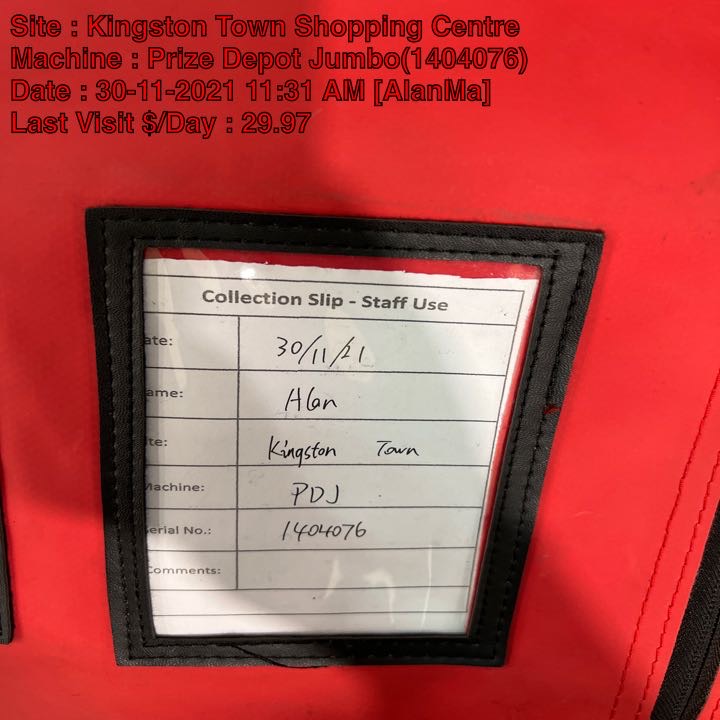 Site : Kingston Town Shopping Centre
Machine : Prize Depot Jumbo(1404076)
Date : 30-11-2021 11:31 AM [AlanMa]
Last Visit $/Day : 29.97
Collection Slip - Staff Use
ate: 30/11/21
ame: Alan
ite: Kingston Town
Machine: PDJ
erial No.: 1404076
Comments: